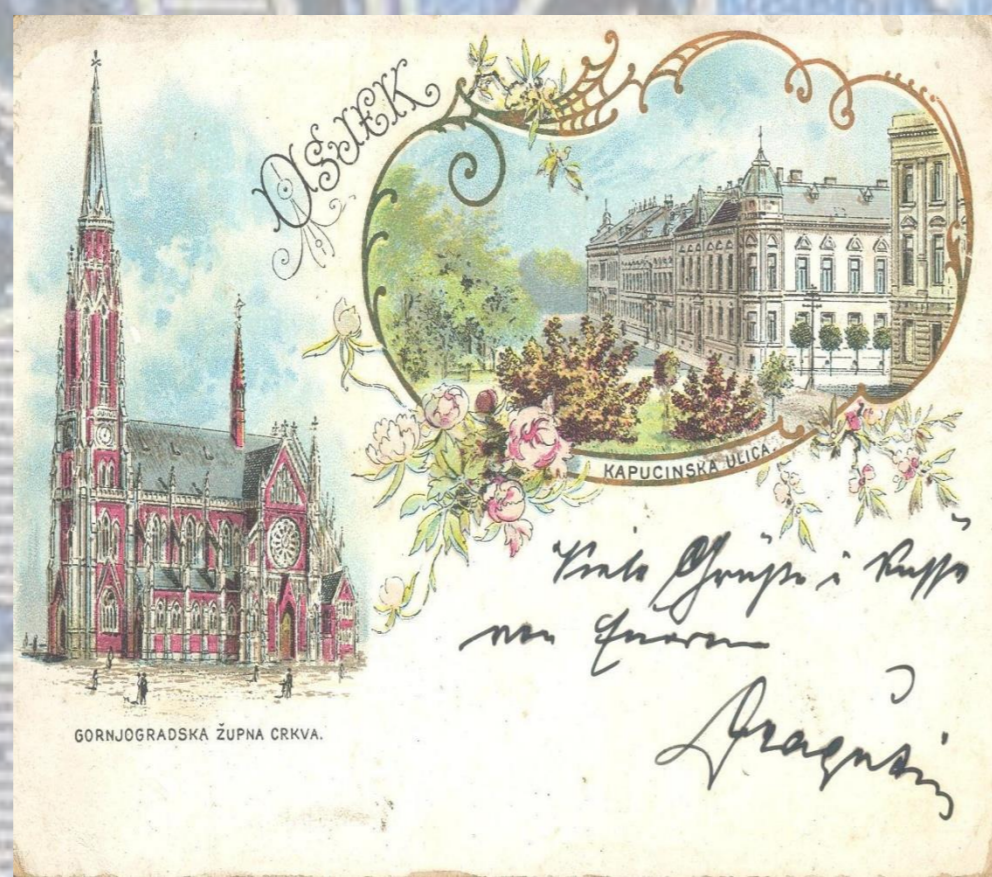 OSIJEK
KAPUCINSKA ULICA.
GORNJOGRADSKA ŽUPNA CRKVA.
Viele Grüße i Küsse
von Eueren
Dragutin